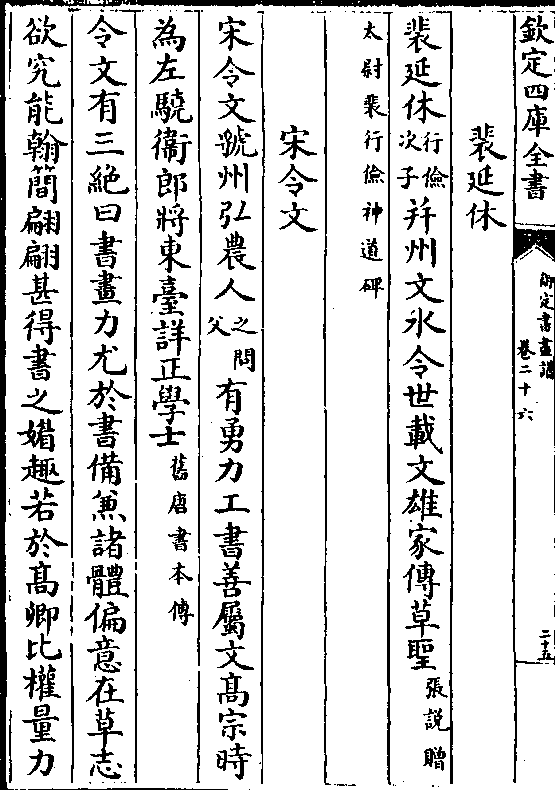 欽定四庫全書
御定書畫譜
卷二十六
二十五
裴延休
裴延休行儉次子并州文水令世載文雄家傳草聖張説贈
太尉裴行儉神道碑
宋令文
宋令文虢州弘農人之問父有勇力工書善屬文髙宗時
為左驍衞郎將東臺詳正學士舊唐書本傳
令文有三絶曰書畫力尤於書備兼諸體偏意在草志
欲究能翰簡翩翩甚得書之媚趣若於髙卿比權量力